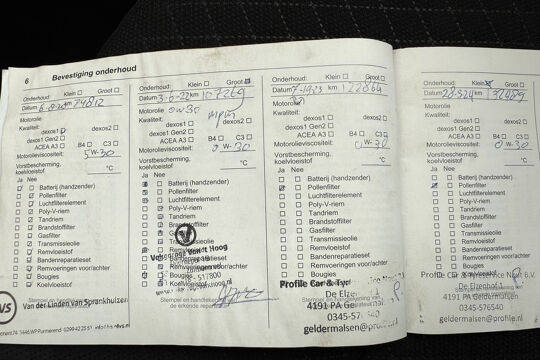 6 Bevestiging onderhoud
Onderhoud: Klein Groot
Datum km 74812
Motorolie
Kwaliteit:
dexos1 dexos2
dexos1 Gen2
ACEA A3 B4 C3
Motorolieviscositeit: 5 W-30
Vorstbescherming,
koelvloeistof °C
Ja Nee
Batterij (handzender)
Pollenfilter
Luchtfilterelement
Poly-V-riem
Tandriem
Brandstoffilter
Gasfilter
Transmissieolie
Remvloeistof
Bandenreparatieset
Remvoeringen voor/achter
Bougies
Koelvloeistof
Van der Linden van Sprankhuizen
1446 WP Purmerend
Onderhoud: Klein Groot
Datum 3-6-22 km 107269
Motorolie 0W30
Kwaliteit:
dexos1 dexos2
dexos1 Gen2
ACEA A3 B4 C3
Motorolieviscositeit: 0 W-30
Vorstbescherming,
koelvloeistof °C
Ja Nee
Batterij (handzender)
Pollenfilter
Luchtfilterelement
Poly-V-riem
Tandriem
Brandstoffilter
Gasfilter
Transmissieolie
Remvloeistof
Bandenreparatieset
Remvoeringen voor/achter
Bougies
Koelvloeistof
Onderhoud: Klein Groot
Datum km 122864
Motorolie
Kwaliteit:
dexos1 dexos2
dexos1 Gen2
ACEA A3 B4 C3
Motorolieviscositeit: 0 W-30
Vorstbescherming,
koelvloeistof °C
Ja Nee
Batterij (handzender)
Pollenfilter
Luchtfilterelement
Poly-V-riem
Tandriem
Brandstoffilter
Gasfilter
Transmissieolie
Remvloeistof
Bandenreparatieset
Remvoeringen voor/achter
Profile Car & Tyre
De Elzenhof
4191 PA Geldermalsen
0345-57
geldermalsen@profile.nl
Onderhoud: Klein Groot
Datum 28-5-24 km 132989
Motorolie
Kwaliteit:
dexos1 dexos2
dexos1 Gen2
ACEA A3 B4 C3
Motorolieviscositeit: 0 W-30
Vorstbescherming,
koelvloeistof °C
Ja Nee
Batterij (handzender)
Pollenfilter
Luchtfilterelement
Poly-V-riem
Tandriem
Brandstoffilter
Gasfilter
Transmissieolie
Remvloeistof
Bandenreparatieset
Remvoeringen voor/achter
Profile Car & Tyreservice B.V.
De Elzenhof 1
4191 PM Geldermalsen
0345-576540
geldermalsen@profile.nl